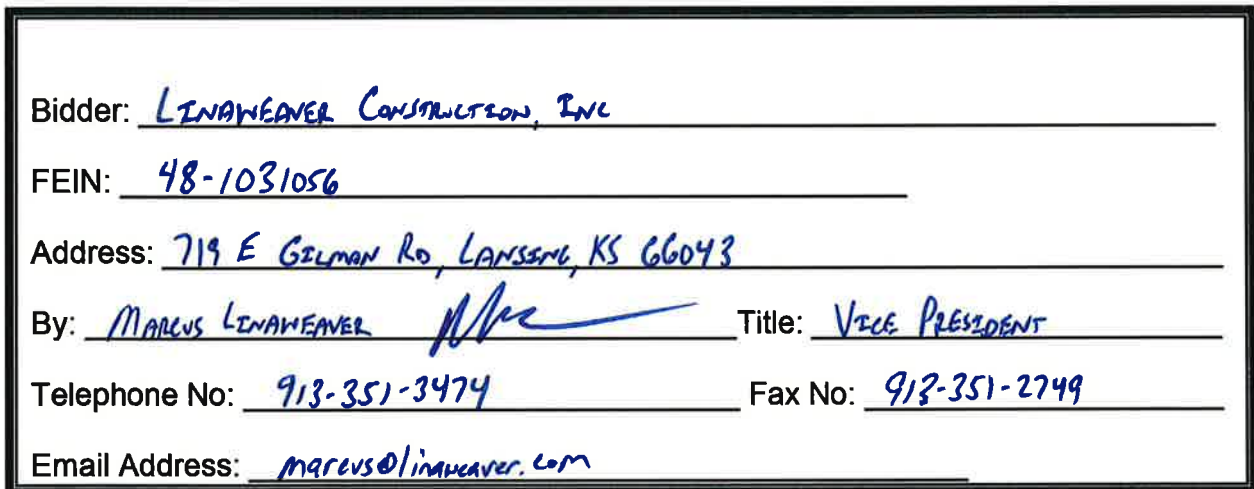 Bidder: LINAWEAVER CONSTRUCTION, INC
FEIN: 48-1031056
Address: 719 E GILMAN RD, LANSING, KS 66043
By: MARCUS LINAWEAVER Title: VICE PRESIDENT
Telephone No: 913-351-3474 Fax No: 913-351-2749
Email Address: marcus@linaweaver.com